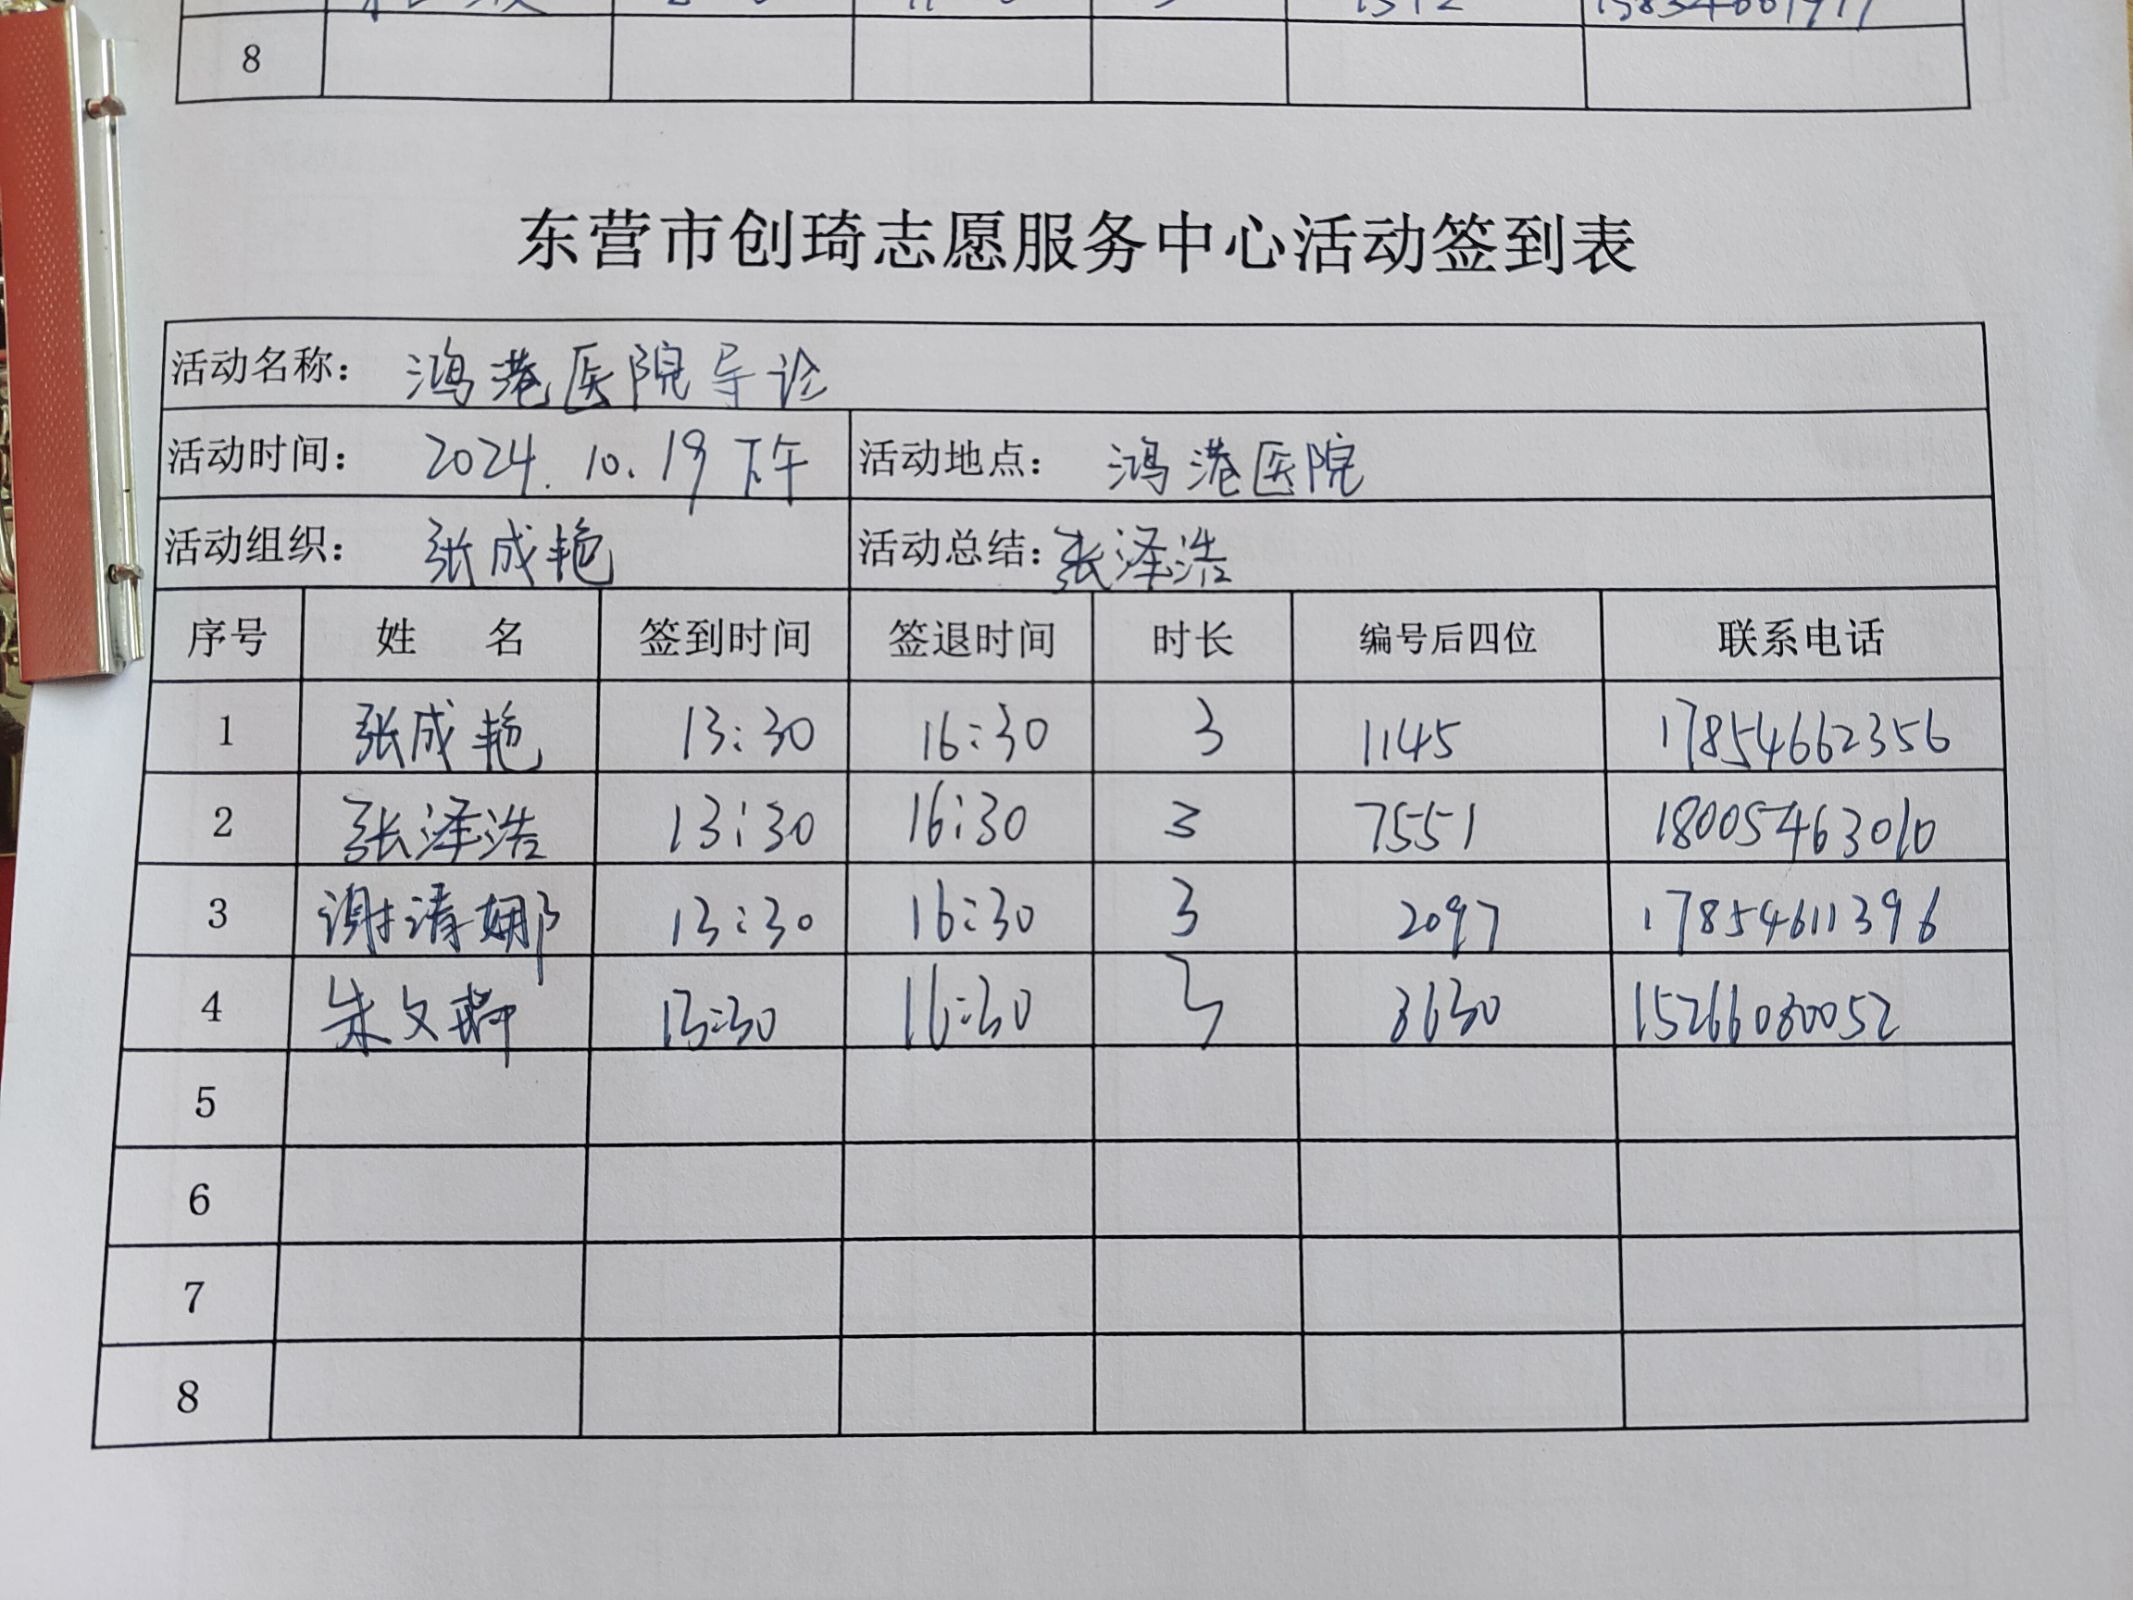 8
东营市创琦志愿服务中心活动签到表
活动名称： 鸿港医院导诊
活动时间： 2024.10.19下午 活动地点： 鸿港医院
活动组织： 张成艳 活动总结：张泽浩
序号 姓 名 签到时间 签退时间 时长 编号后四位 联系电话
1 张成艳 13:30 16:30 3 1145 17854662356
2 张泽浩 13:30 16:30 3 7551 18005463010
3 谢清娜 13:30 16:30 3 2097 17854611396
4 朱文 13:30 16:30 3 3630 15266080052
5
6
7
8